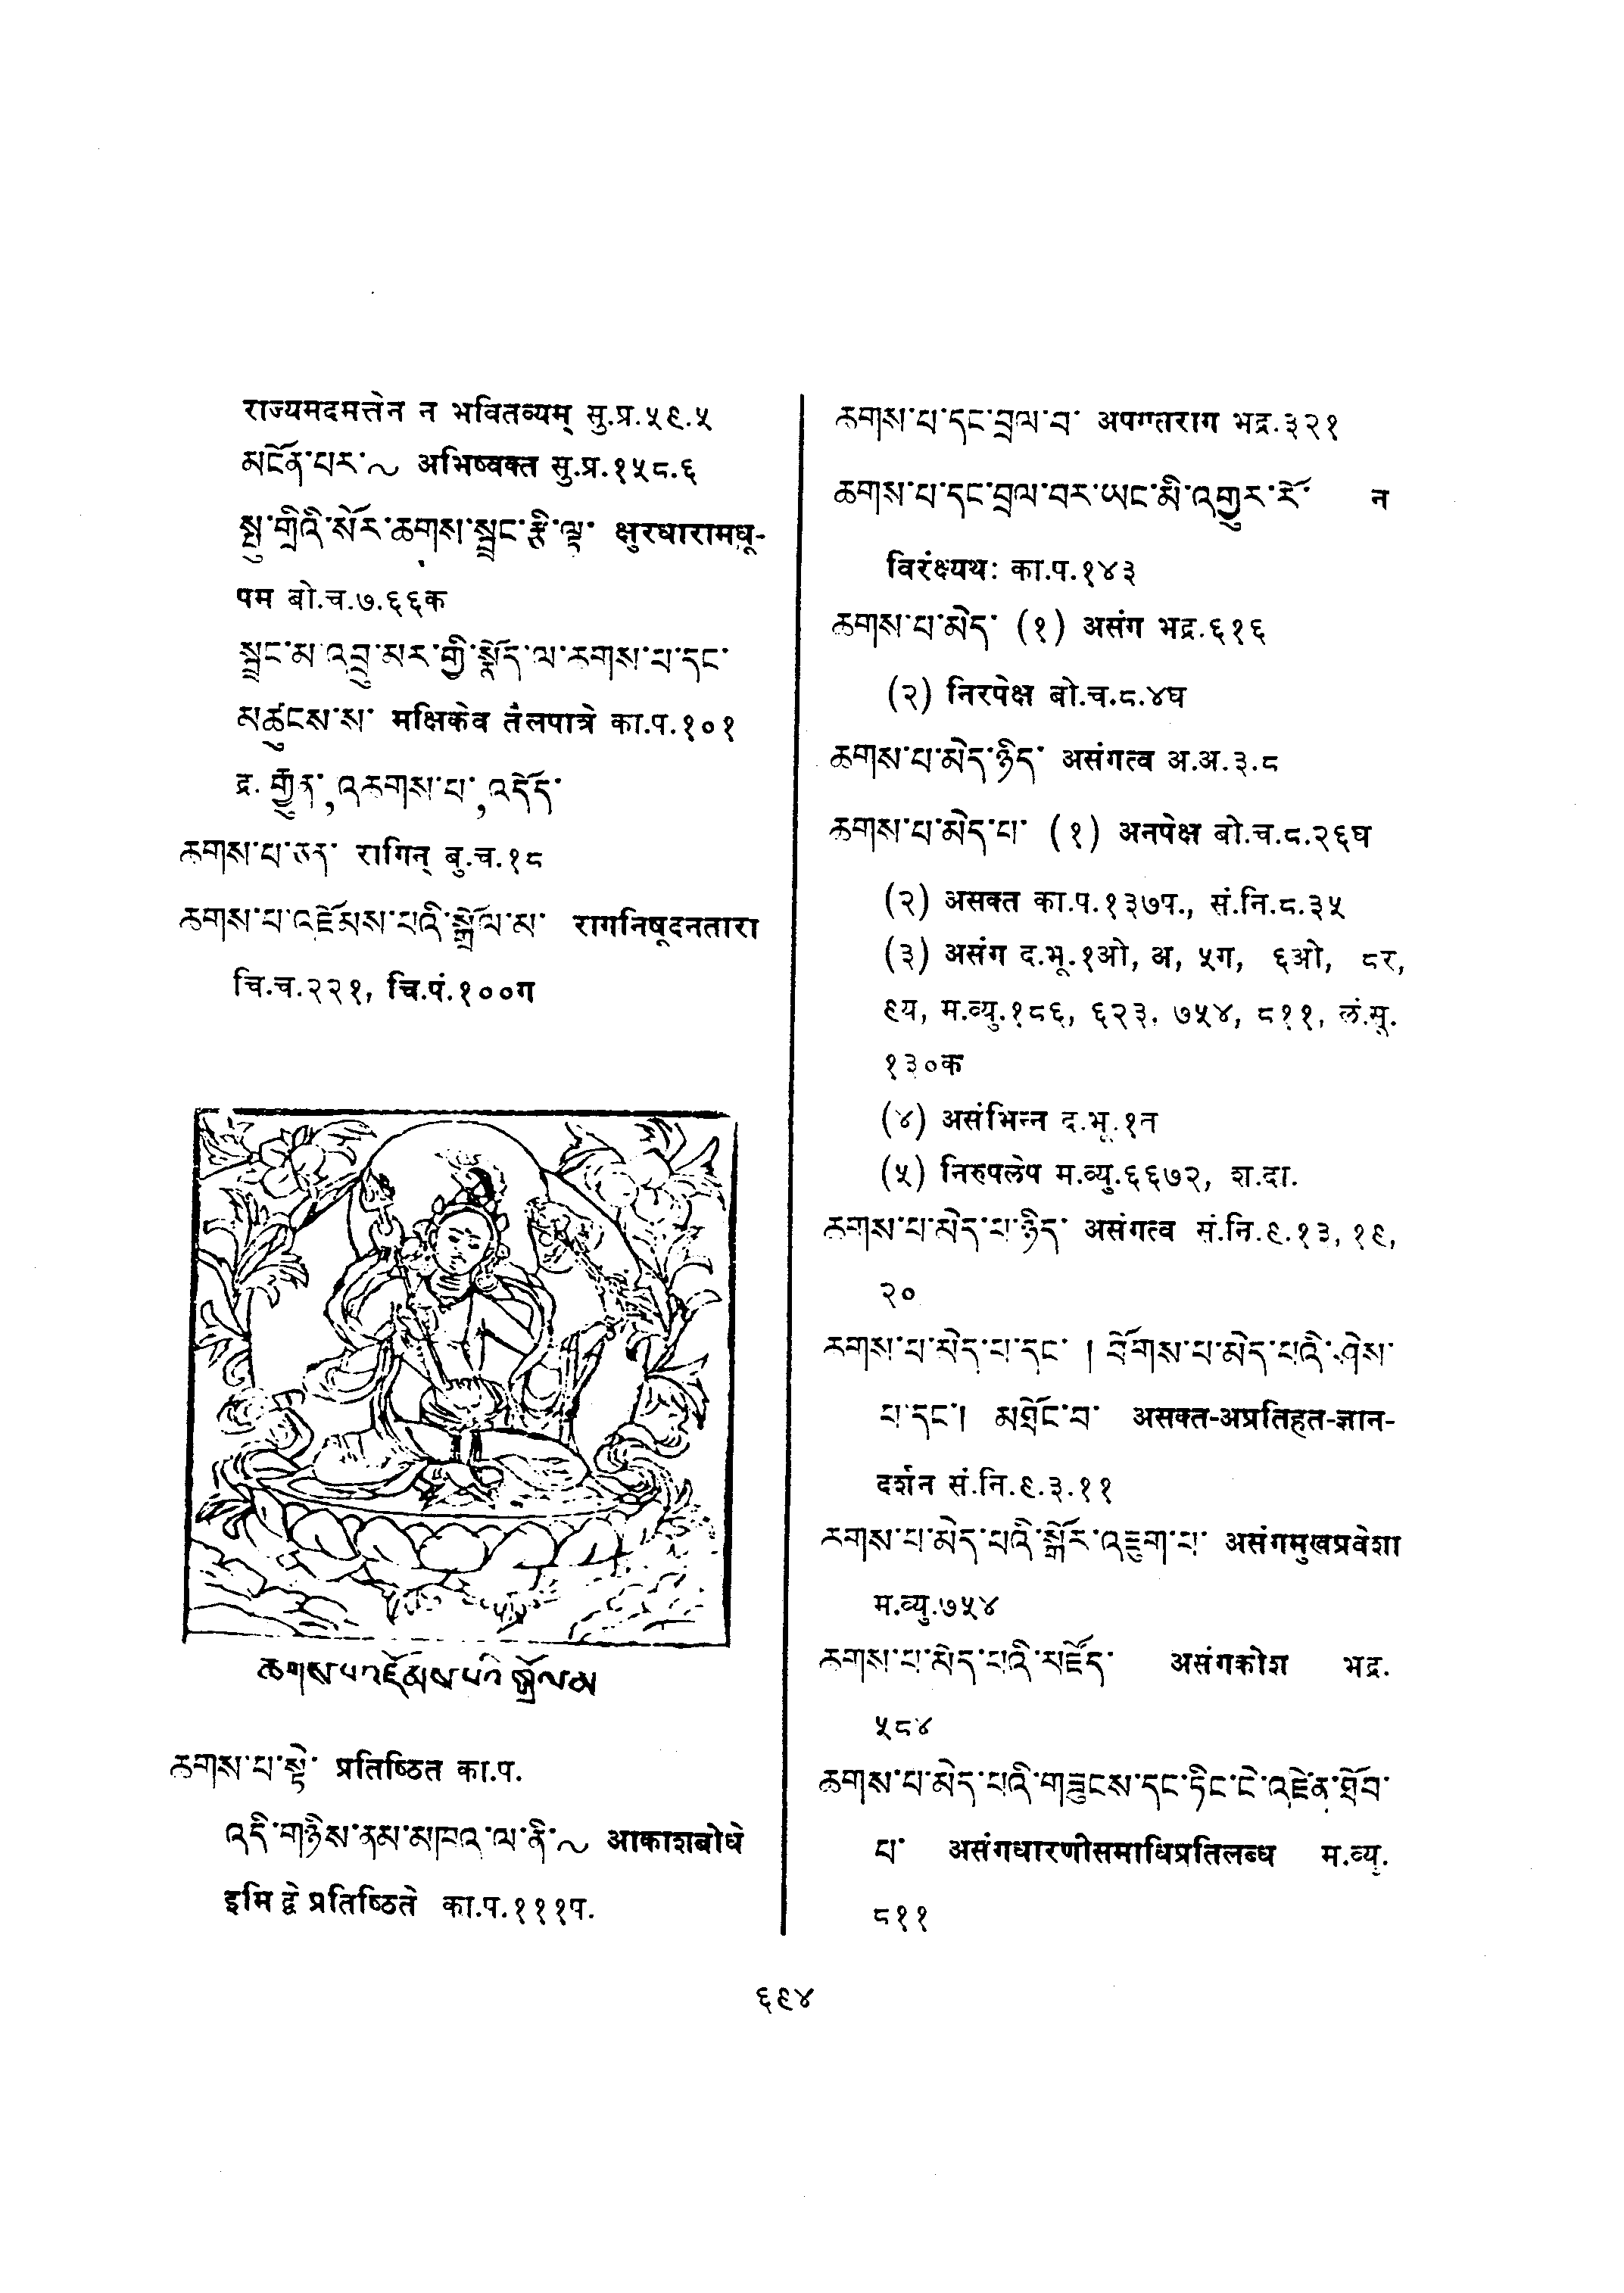 राज्यमदमत्तेन न भवितव्यम् सु.प्र.५९.५
མངོན་པར་~ अभिष्वक्त सु.प्र.१५८.६
སྤུ་གྲིའི་སོར་ཆགས་སྦྲང་རྩི་ལྟ་ क्षुरधारामधू-
पम बो.च.७.६६क
སྦྲང་མ་འབྲུ་མར་གྱི་སྣོད་ལ་ཆགས་པ་དང་
མཚུངས་ས་ मक्षिकेव तंलपात्रे का.प.१०१
द्र. རྒྱུན་, འཆགས་པ་, འདོད་
ཆགས་པ་ཅན་ रागिन् बु.च.१८
ཆགས་པ་འཇོམས་པའི་སྒྲོལ་མ་ रागनिषूदनतारा
चि.च.२२१, चि.पं.१००ग
ཆགས་པ་འཇོམས་པའི་སྒྲོལ་མ
ཆགས་པ་སྟེ་ प्रतिष्ठित का.प.
འདི་གཉིས་ནམ་མཁའ་ལ་ནི་~ आकाशबोधे
इमि द्वे प्रतिष्ठिते का.प.१११प.
ཆགས་པ་དང་བྲལ་བ་ अपगतराग भद्र.३२१
ཆགས་པ་དང་བྲལ་བར་ཡང་མི་འགྱུར་རོ་ न
विरंक्ष्यथः का.प.१४३
ཆགས་པ་མེད་ (१) असंग भद्र.६१६
(२) निरपेक्ष बो.च.८.४घ
ཆགས་པ་མེད་ཉིད་ असंगत्व अ.अ.३.८
ཆགས་པ་མེད་པ་ (१) अनपेक्ष बो.च.८.२६घ
(२) असक्त का.प.१३७प., सं.नि.८.३५
(३) असंग द.भू.१ओ, अ, ५ग, ६ओ, ८र,
९य, म.व्यु.१८६, ६२३, ७५४, ८११, लं.सू.
१३०क
(४) असंभिन्न द.भू.१न
(५) निरुपलेप म.व्यु.६६७२, श.दा.
ཆགས་པ་མེད་པ་ཉིད་ असंगत्व सं.नि.९.१३, १९,
२०
ཆགས་པ་མེད་པ་དང་ ། ཐོགས་པ་མེད་པའི་ཤེས་
པ་དང་། མཐོང་བ་ असक्त-अप्रतिहत-ज्ञान-
दर्शन सं.नि.९.३.११
ཆགས་པ་མེད་པའི་སྒོར་འཇུག་པ་ असंगमुखप्रवेशा
म.व्यु.७५४
ཆགས་པ་མེད་པའི་མཛོད་ असंगकोश भद्र.
५८४
ཆགས་པ་མེད་པའི་གཟུངས་དང་ཏིང་ངེ་འཛིན་ཐོབ་
པ་ असंगधारणीसमाधिप्रतिलब्ध म.व्यु.
८११
६९४